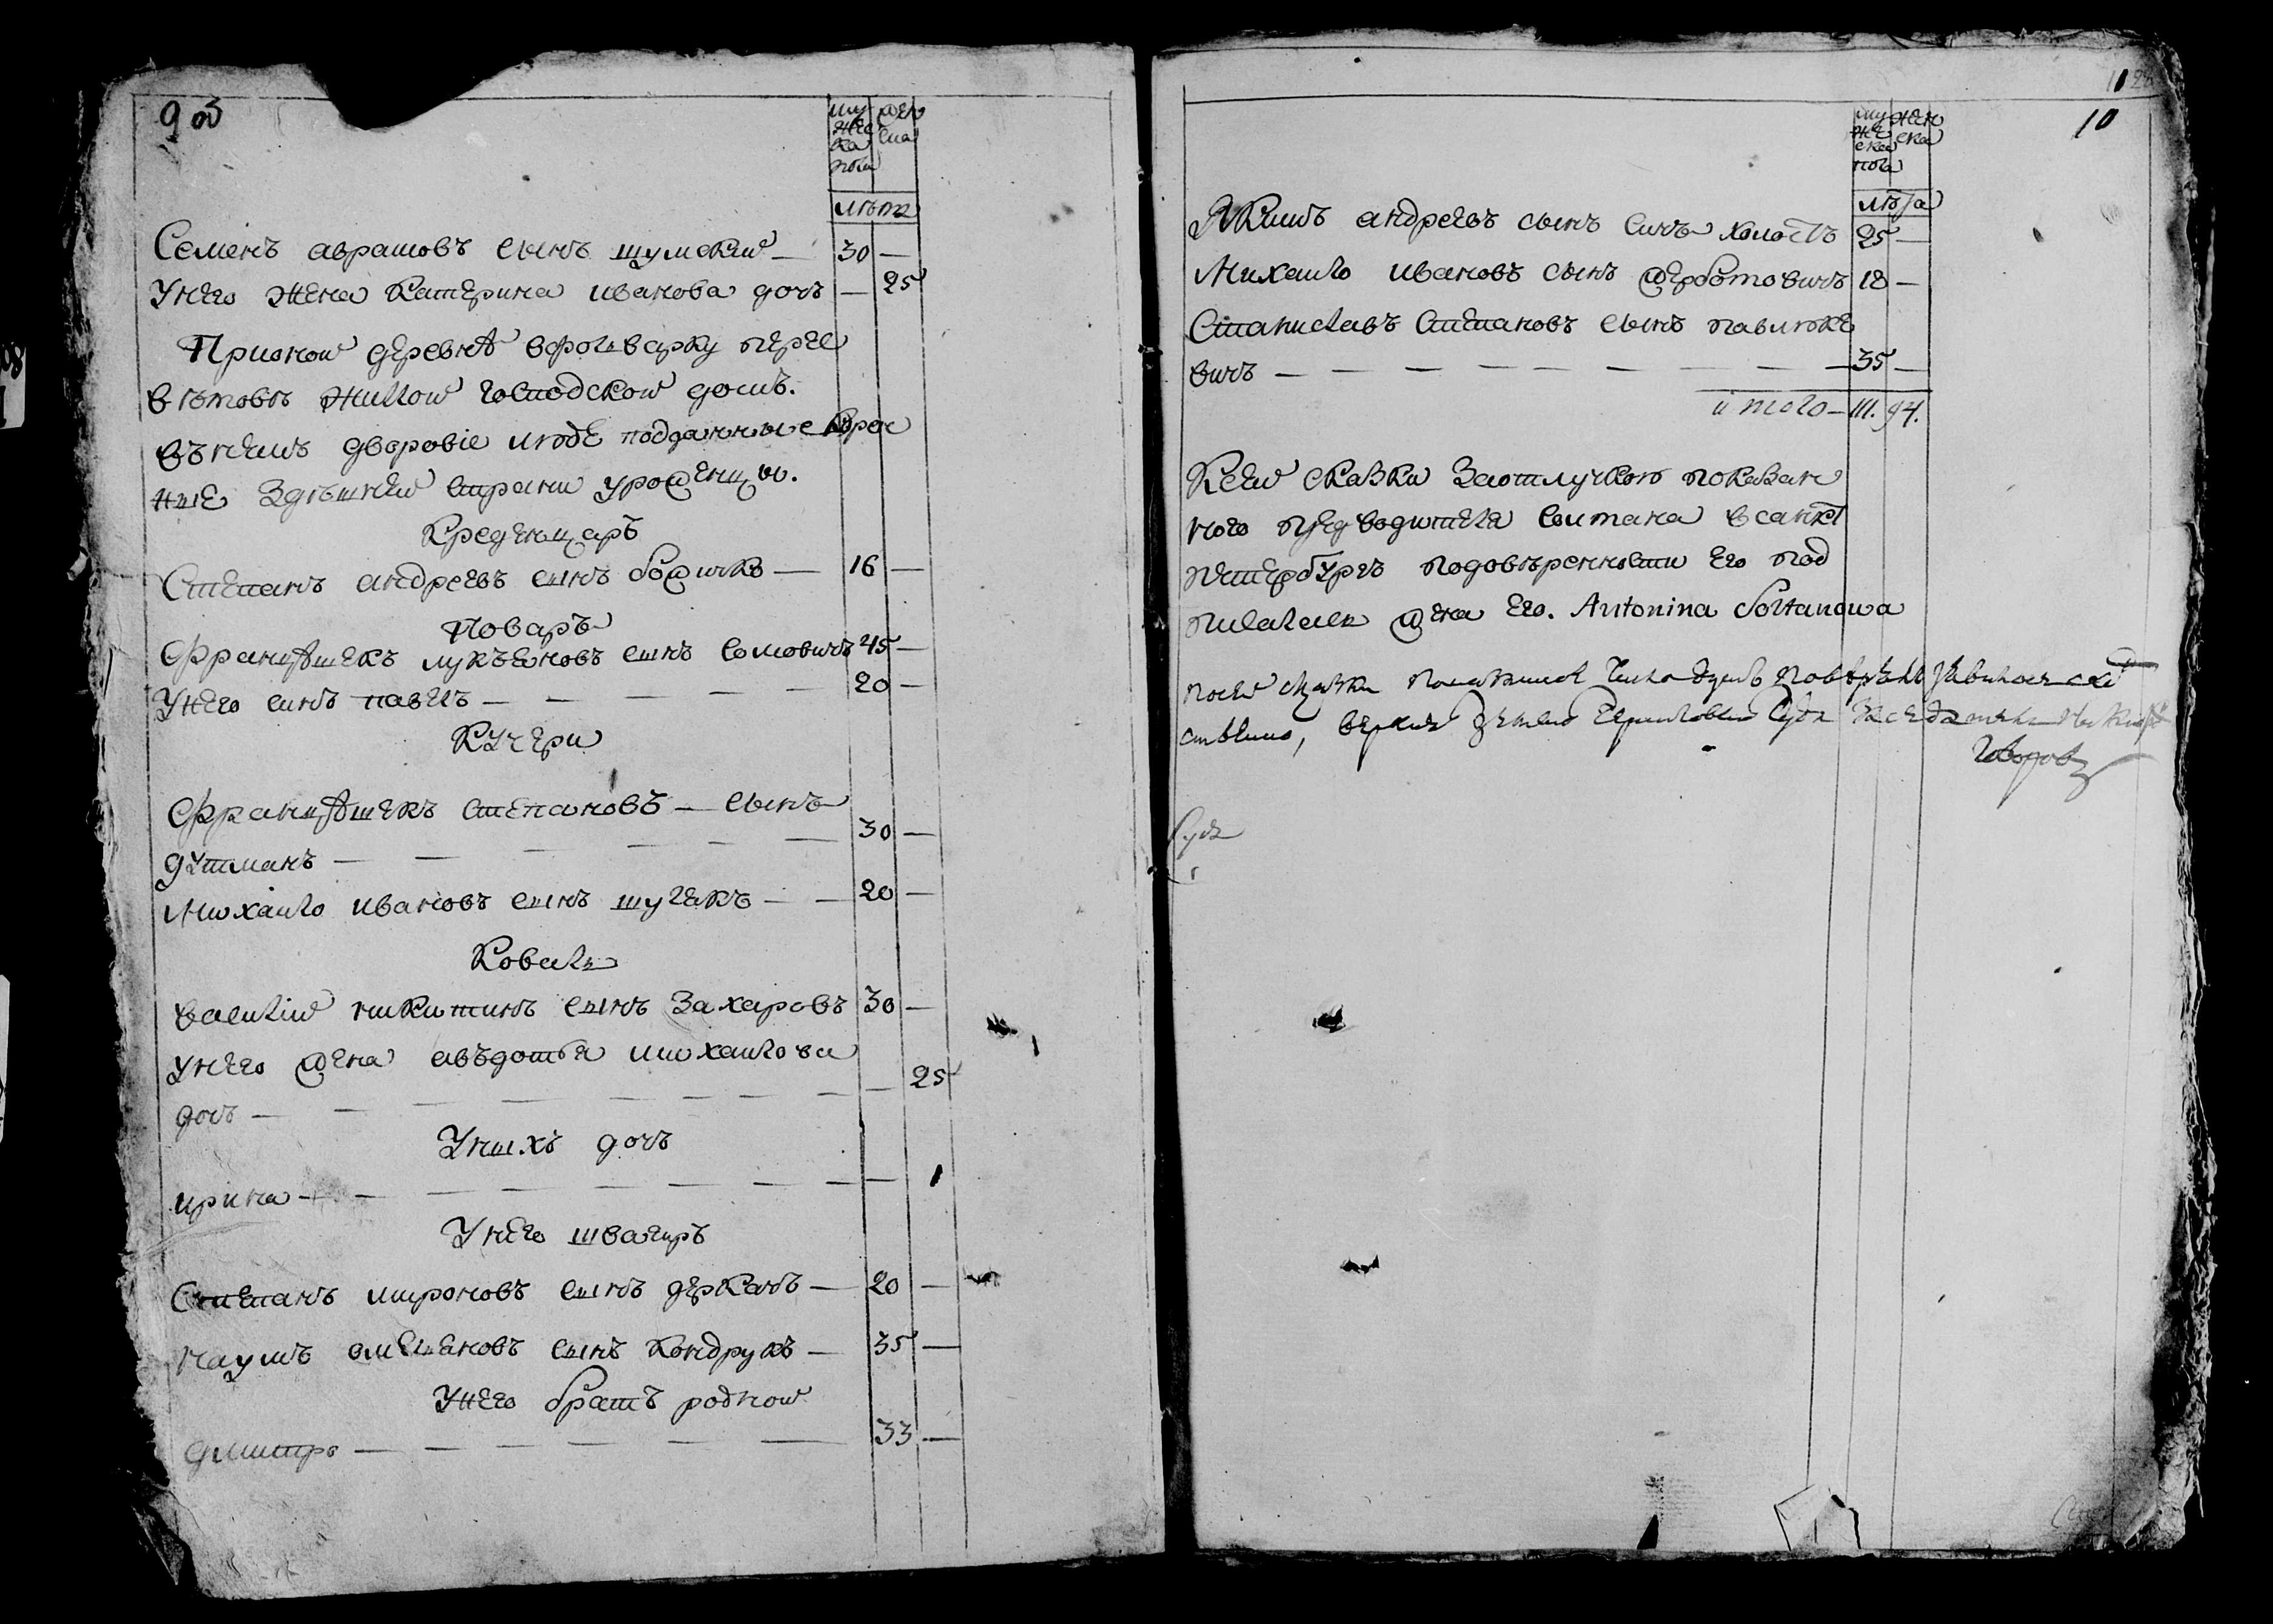 9 об
мужеска пола
женска
лѣта
Семенъ аврамовъ сынъ шумский — 30 —
Унего жена катерина иванова дочь — 25
Прионой деревнѣ вфольварку пере
вѣтовѣ жиллой господской домъ.
внемъ дворовіе люде подданные крепо
ные здѣшней страни уроженцы.
Креденцаръ
Степанъ андреевъ сынъ божикъ — 16 —
Поваръ
Францѣшекъ лукъяновъ сынъ сомовичъ 45 —
Унего синъ павелъ — — — — — 20 —
Кучери
Францѣшекъ степановъ — сынъ
дутманъ — — — — — — 30 —
Михайло ивановъ сынъ шучекъ — — 20 —
Коваль
василій никитинъ сынъ Захаровъ 30 —
Унего жена авъдотья михайлова
дочь — — — — — — — — — 25
Унихъ дочъ
ирина — — — — — — — — — 1
Унего швагиръ
Степанъ мироновъ сынъ деркачъ — 20 —
наумъ омельяновъ сынъ Кондрукъ — 35 —
Унего братъ родной
дмитро — — — — — — 33 —
11
10
мужеска пола
женска
лѣта
Якимъ андреевъ сынъ холостъ 25 —
Михайло ивановъ сынъ жерботовичъ 18 —
Станиславъ степановъ сынъ павилке
вичъ — — — — — — — — 35 —
итого — 111. 94.
Ксей сказки заотлучкою показан
ного предводителя солтана всанкт
петербургъ подовѣренности его под
писалась жена его. Antonina Sołtanowa
посей сказки показанное число душъ повѣрялъ
Говоров
Судя